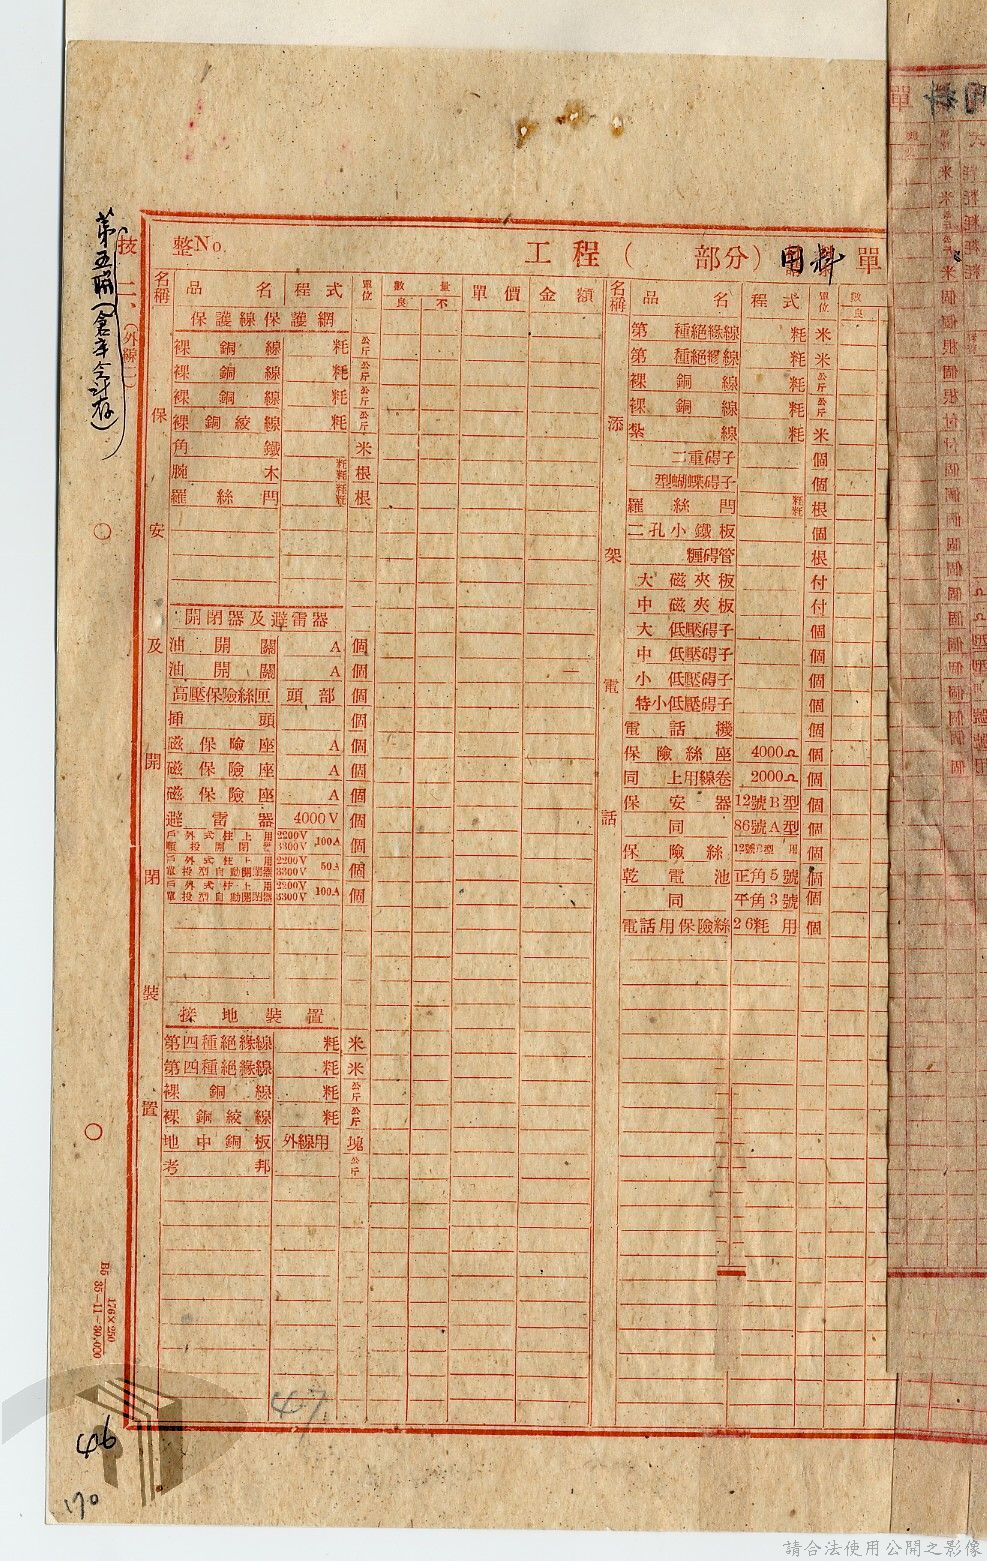 整No.
工程( 部分)用料單
名稱 品名 程式 單位 數量 良 不 單價 金額
保安及開閉裝置
保護線保護網
裸銅線 粍 公斤
裸銅線 粍 公斤
裸銅線 粍 公斤
裸銅絞線 粍 公斤
角鐵 米
腕木 粍粍 根
羅絲閂 粍粍 根
開閉器及避雷器
油開關 A 個
油開關 A 個
高壓保險絲匣 頭部 個
挿頭 個
磁保險座 A 個
磁保險座 A 個
磁保險座 A 個
避雷器 4000V 個
戶外式柱上用 2200V 3300V 100A 個
戶外式柱上用單投型自動開閉器 2200V 3300V 50A 個
戶外式柱上用單投型自動開閉器 2200V 3300V 100A 個
接地裝置
第四種絕緣線 粍 米
第四種絕緣線 粍 米
裸銅線 粍 公斤
裸銅絞線 粍 公斤
地中銅板 外線用 塊
考邦 公斤
名稱 品名 程式 單位 數 良
添架電話
第 種絕緣線 粍 米
第 種絕緣線 粍 米
裸銅線 粍 公斤
裸銅線 粍 公斤
紮線 粍 米
二重碍子 個
型蝴蝶碍子 個
羅絲閂 粍粍 根
二孔小鐵板 個
種碍管 根
大磁夾板 付
中磁夾板 付
大 低壓碍子 個
中 低壓碍子 個
小 低壓碍子 個
特小低壓碍子 個
電話機 個
保險絲座 4000Ω 個
同上用線卷 2000Ω 個
保安器 12號B型 個
同 86號A型 個
保險絲 用 個
乾電池 正角5號 個
同 平角3號 個
電話用保險絲 26粍用 個
技二、(外線二)
B5 176×250
35—11—30,000
47
46
170
請合法使用公開之影像